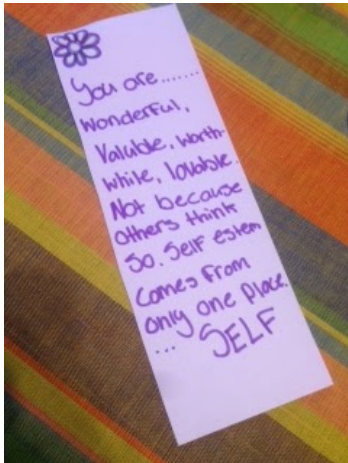 You are.......
Wonderful,
Valuble, worth-
while, lovable.
Not because
others think
so. Self estem
comes from
only one place.
... SELF